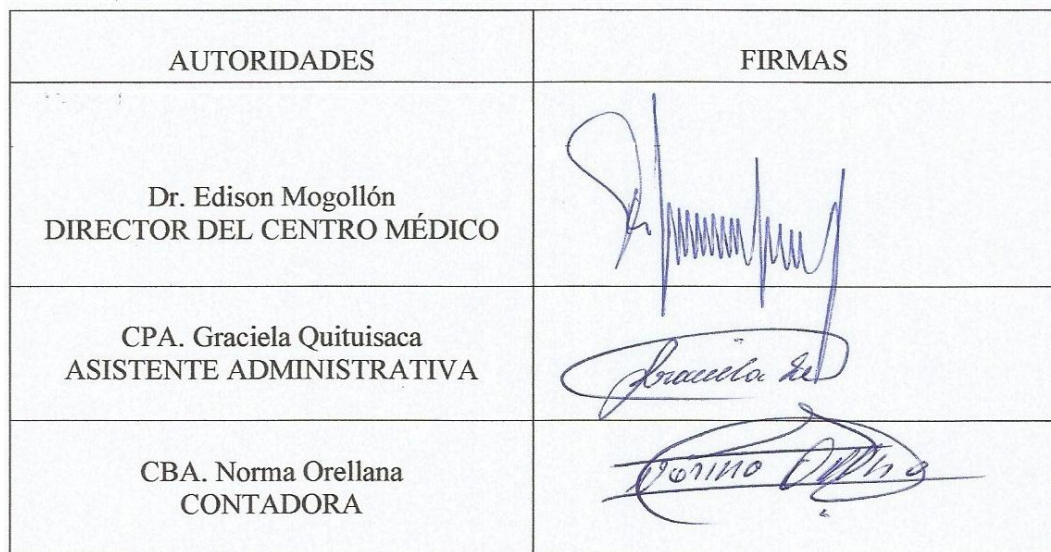 AUTORIDADES
FIRMAS
Dr. Edison Mogollón
DIRECTOR DEL CENTRO MÉDICO
CPA. Graciela Quituisaca
ASISTENTE ADMINISTRATIVA
Graciela
CBA. Norma Orellana
CONTADORA